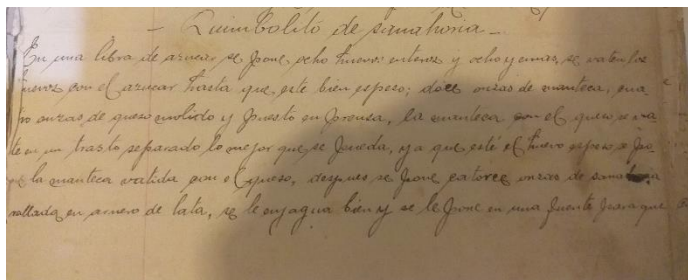 Quimbolito de sanahoria
En una libra de azucar se pone ocho huevos enteros y ocho yemas, se vaten los
huevos con el azucar hasta que este bien espeso; doce onzas de manteca, cua
tro onzas de queso molido y puesto en prensa, la manteca con el queso se va
te en un trasto separado lo mejor que se pueda, ya que esté el huevo espeso se po
ne la manteca vatida con el queso, despues se pone catorce onzas de sanahoria
rallada en arnero de lata, se le enjagua bien y se le pone en una fuente para que